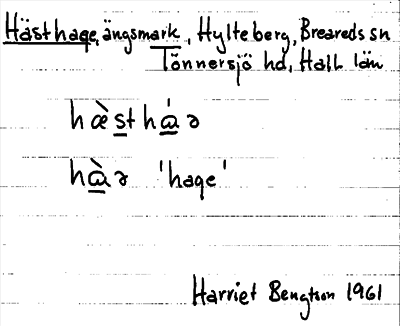 Hästhage, ängsmark, Hylteberg, Breareds sn
Tönnersjö hd, Hall. län
hæ̀s̲th<u>ɑ</u>́ə
h<u>ɑ</u>̀ə 'hage'
Harriet Bengtson 1961